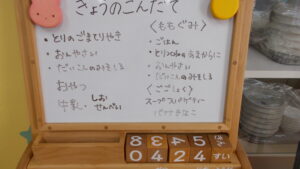 きょうのこんだて
・とりのごまてりやき
・おんやさい
・だいこんのみそしる
おやつ
牛乳・しお
せんべい
〈ももぐみ〉
・ごはん
・とりつくねのあまからに
・おんやさい
・だいこんのみそしる
〈ごごしょく〉
スープスパゲティー
8 3 4 5
0 4 2 4 すい